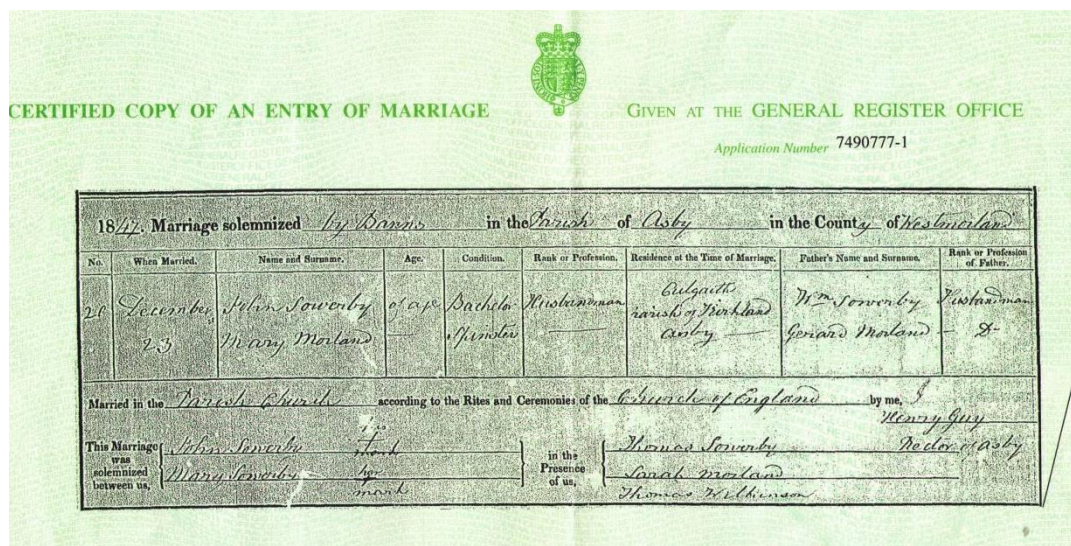 CERTIFIED COPY OF AN ENTRY OF MARRIAGE
GIVEN AT THE GENERAL REGISTER OFFICE
Application Number 7490777-1
1847. Marriage solemnized by Banns in the Parish of Asby in the County of Westmorland
No. When Married. Name and Surname. Age. Condition. Rank or Profession. Residence at the Time of Marriage. Father's Name and Surname. Rank or Profession of Father.
December John Sowerby of age Bachelor Husbandman Culgaith parish of Kirkland Wm Sowerby Husbandman
23 Mary Morland Spinster Asby Gerard Morland Do
Married in the Parish Church according to the Rites and Ceremonies of the Church of England by me,
Henry Guy
Rector of Asby
This Marriage was solemnized between us,
John Sowerby his mark
Mary Sowerby her mark
in the Presence of us,
Thomas Sowerby
Sarah Morland
Thomas Wilkinson